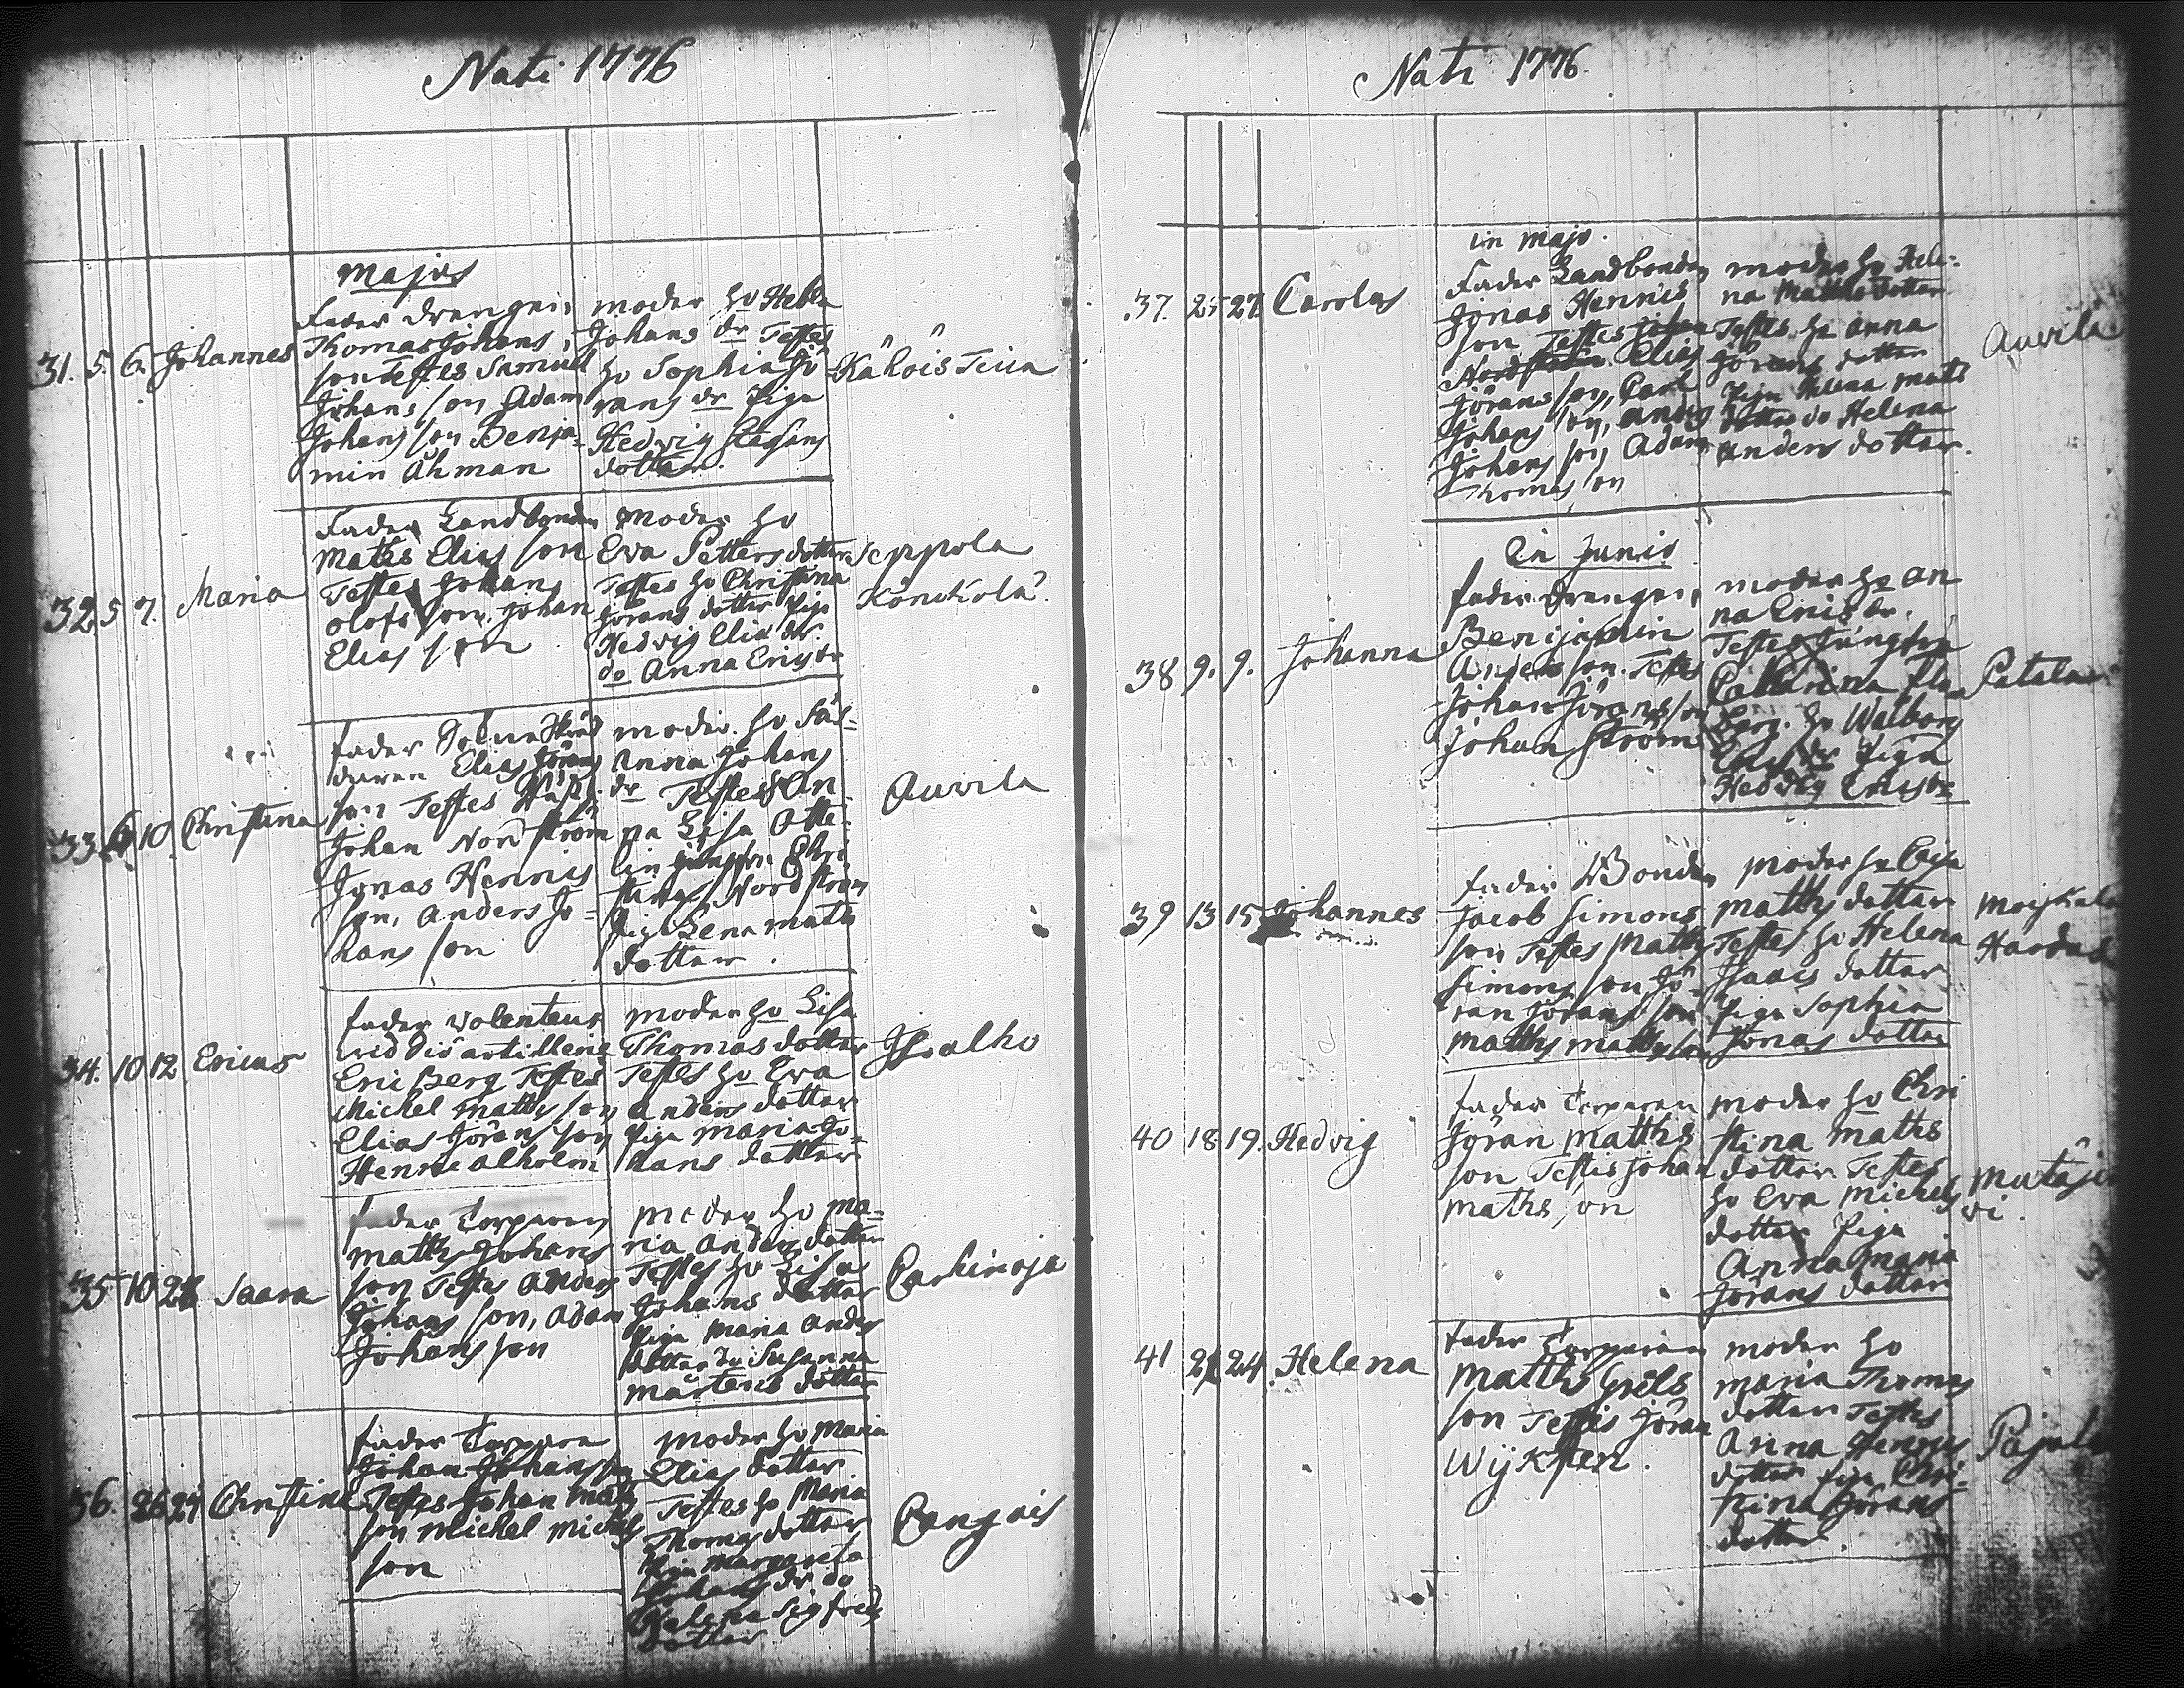 Nati 1776
Majus
31. 5. 6. Johannes
Fader drengen
Thomas Johans
son Testes Samuel
Johans son Adam
Johans son Benja-
min Åhman
moder ho Hebla
Johans dr Testes
ho Sophia Jö
rans dr Piga
Hedvig Stafans
dotter.
Kähöis Teua
32 5 7. Maria
Fader Landbonden
Maths Elias son
Testes Johans
Olofs son. Johan
Elias son
Moder ho
Eva Petters dotter
Testes ho Christina
Jörans dotter Piga
Hedvig Elia dr.
do Anna Erics dr
Seppola
Könckola
33 6 10 Christina
fader
Elias Jörans
son Testes
Johan Nordström
Jonas Hennis
son, Anders Jo-
hans son
moder. ho Sus-
anna Johans
dr Testes An
na Lisa Otte-
lin jungfru Chri
stina Nordström
Piga Lena mats
dotter.
Auvila
34. 10 12 Ericus
fader Volenteur
wid artillerie
Eric Berg Testes
Michel Matts son
Elias Jörans son
Henric Alholm
moder ho Lisa
Thomas dotter
Testes ho Eva
Anders dotter
Piga Maria Jo-
hans dotter
Isoalho
35 10 28 Saara
fader Torparen
Matts Johans
son Testes Anders
Johans son, Adam
Johans son
moder ho Ma-
ria Anders dotter
Testes ho Lisa
Johans dotter
Piga Maria Anders
dotter do Susanna
Mårtens dotter
Carhinoja
36. 26 29 Christina
fader Torpare
Johan Johans son
Testes Johan Mats
son Michel Michels
son
Moder ho Maria
Elias dotter
Testes ho Maria
Thomas dotter
Piga Margareta
Johans dr do
Helena Sigfreds
dotter
Cangais
Nati 1776.
in majo.
37. 25 27 Carolus
Fader Landbonden
Jonas Hennis
son Testes Johan
Nordström Elias
Jörans son, Carl
Johans son, Anders
Johans son Adam
Thomas son
moder ho Hele-
na Matths dotter
Testes. ho Anna
Jörans dotter
Piga Helena Mats
dotter do Helena
Anders dotter.
Auvila
In Junio
38 9. 9. Johanna
fader drengen
Benijamin
Anders son. Testes
Johan Jörans son
Johan Ström
moder ho An
na Erics dr.
Testes Jungfru
Catharina
ho Walborg
Elias dr Piga
Hedvig Erics dr
Patala
39 13 15 Johannes
fader Bonden
Jacob Simons
son Testes Matts
Simons son Jö-
ran Jörans son
Matths Matths son
moder ho Caisa
Matths dotter
Testes ho Helena
Isaacs dotter
Piga Sophia
Jonas dotter
40 18 19. Hedvig
fader Torparen
Jöran Matths
son Testis Johan
Maths son
moder ho Chri
stina Maths
dotter. Testes
ho Eva Michels
dotter Piga
Anna Maria
Jörans dotter
41 21 24. Helena
fader Torparen
Matths Grels
son Testis Jöran
Wijksten.
moder ho
Maria Thomas
dotter Testes
Anna Hennis
dotter Piga Chri-
stina Jörans
dotter.